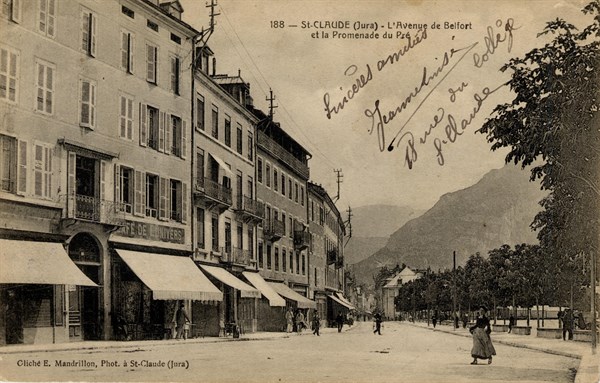 188 — St-CLAUDE (Jura) - L'Avenue de Belfort
et la Promenade du Pré
Sincères amitiés
Jeannelnisé
18 rue du collège
St Claude
CAFÉ DE L'UNIVERS
Cliché E. Mandrillon, Phot. à St-Claude (Jura)